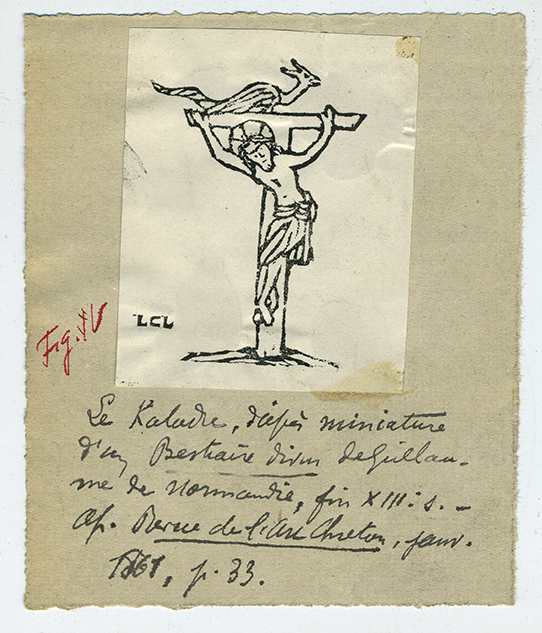 LCL
Fig. IV
Le Kaladre, d'après miniature
d'un Bestiaire divin de Guillau-
me de Normandie, fin XIII: s. –
Ap. Revue de l'Art Chrétien, janv.
p. 33.